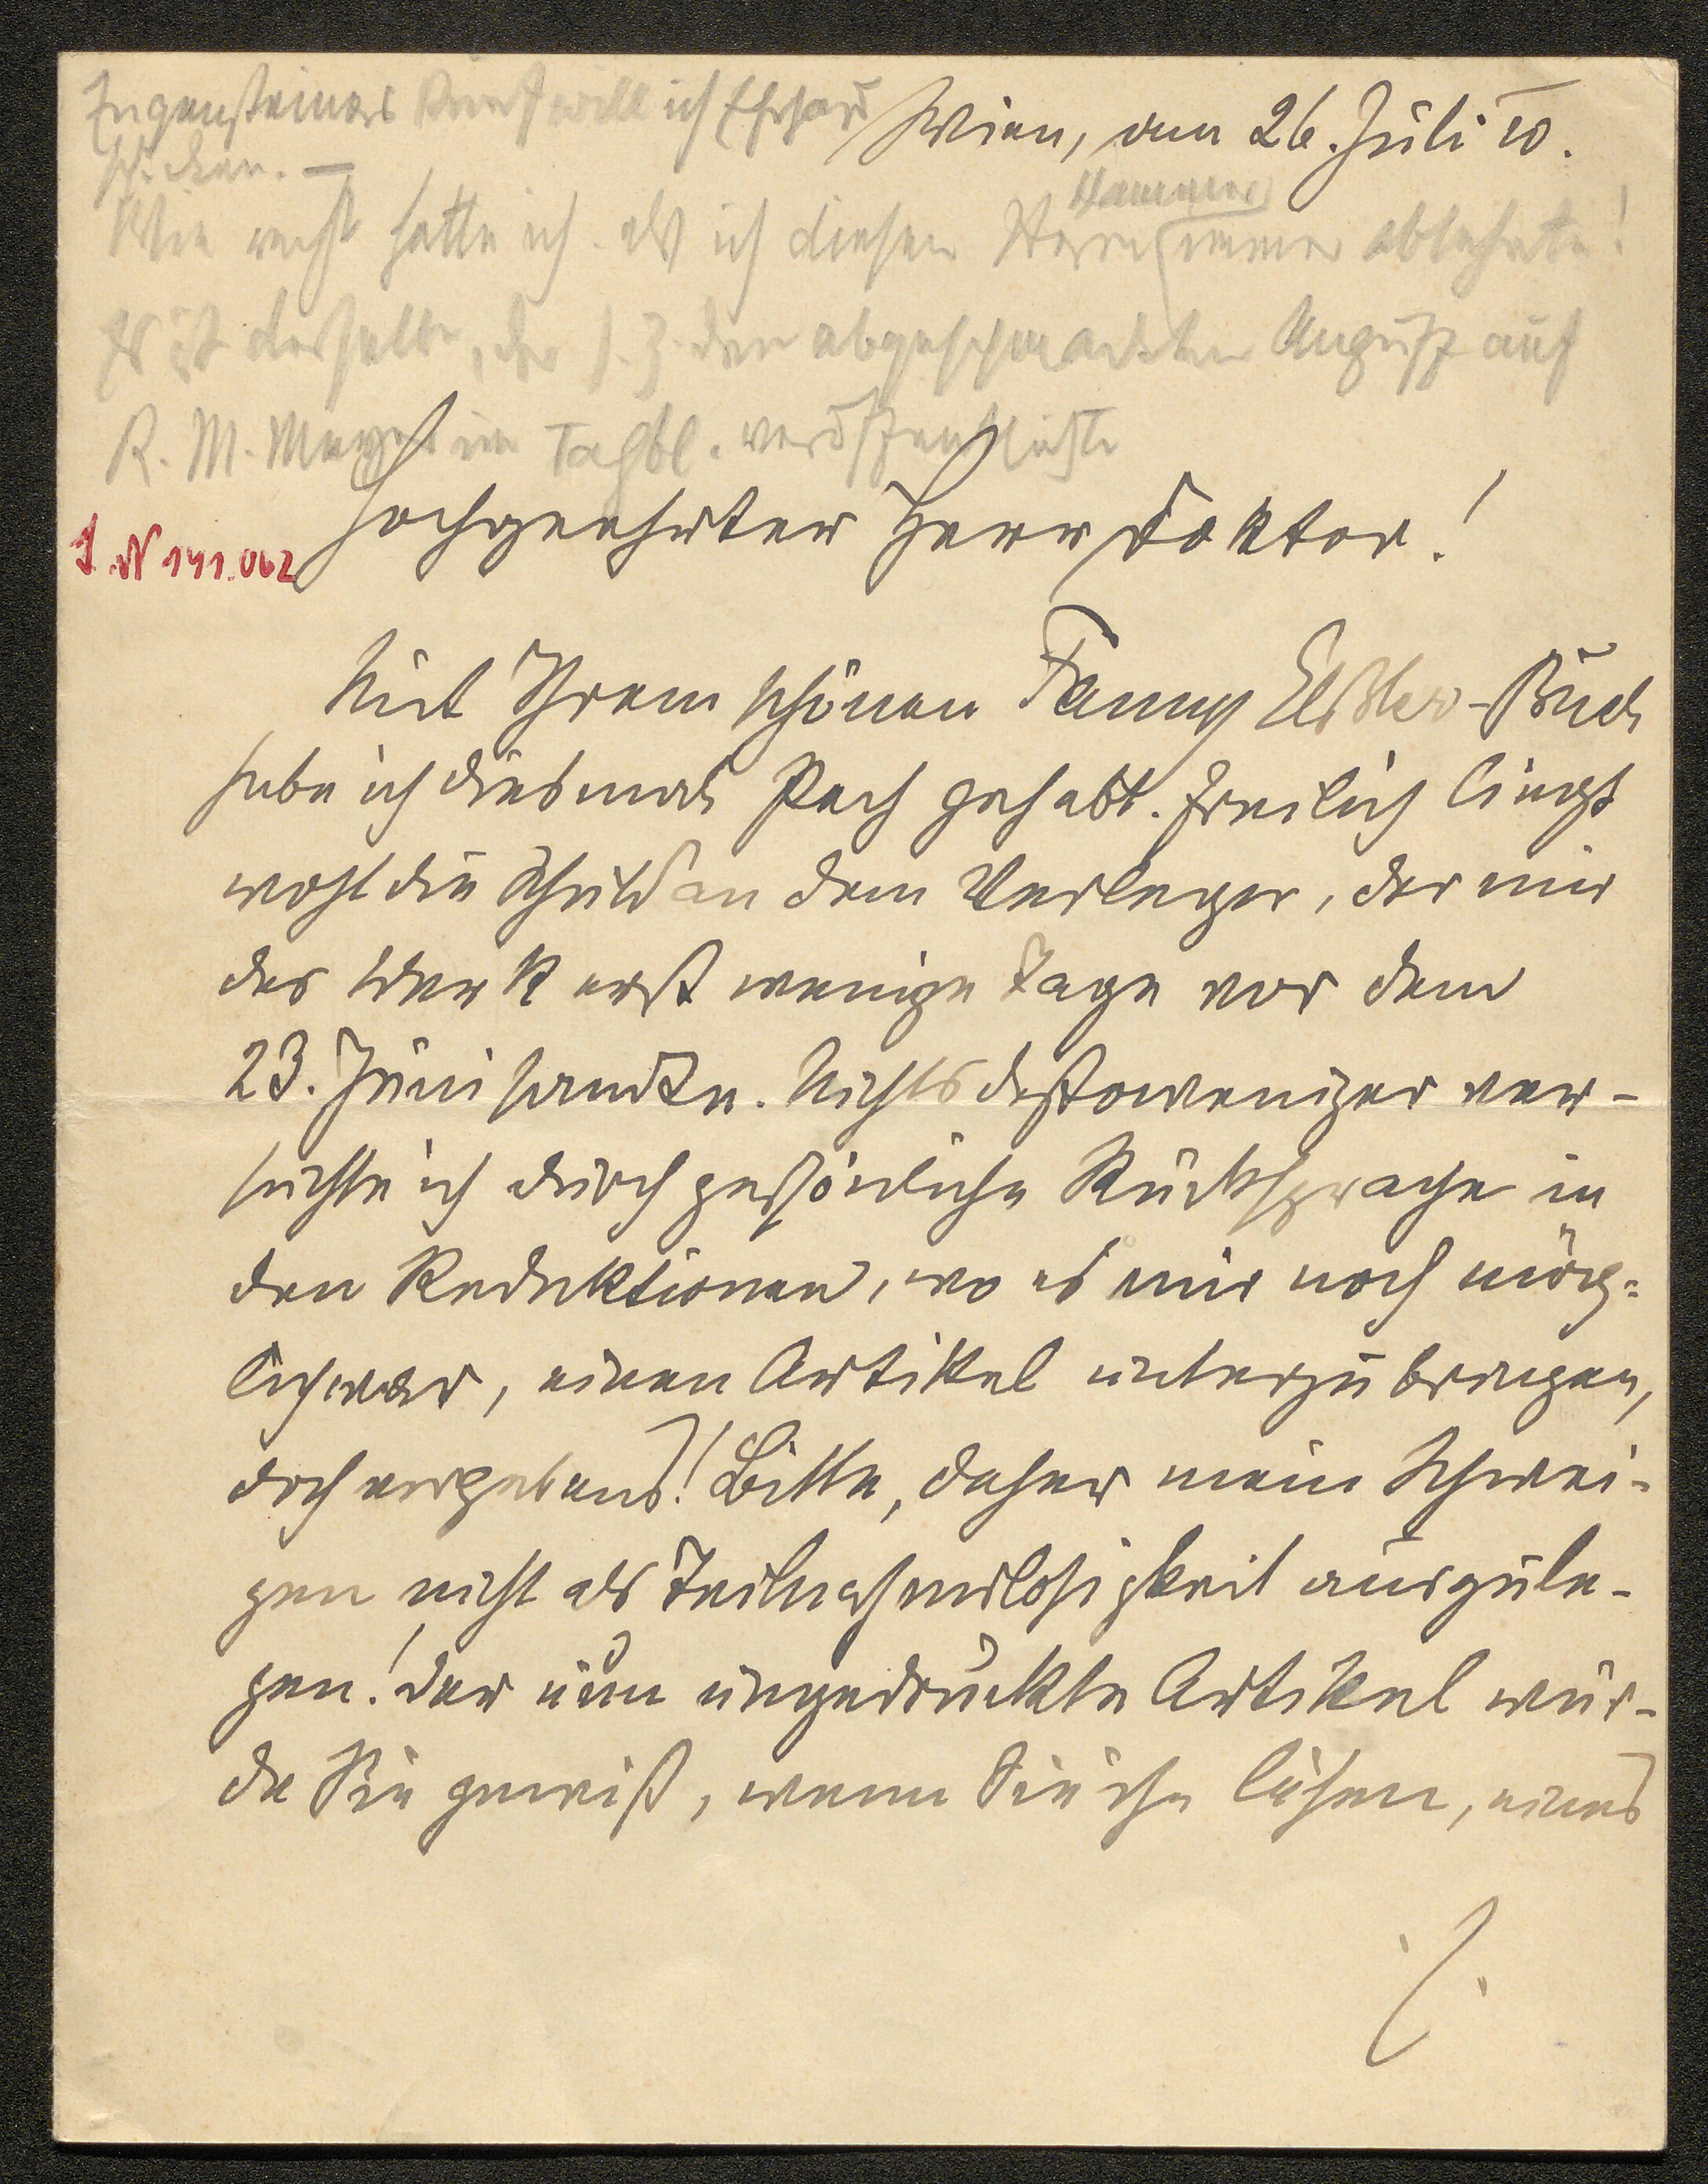 Wien, am 26. Juli 10.
schicken. —
Wie recht hatte ich als ich diesen Herrn immer ablehnte!
Hammer
Es ist derselbe, der s. Z. den abgeschmackten Angriff auf
R. M. Meyer im Tagbl. veröffentlichte
Hochgeehrter Herr Doktor!
I. N 141.062
Mit Ihrem schönen Fanny Elßler-Buch
habe ich diesmal Pech gehabt. Freilich liegt
wohl die Schuld an dem Verleger, der mir
das Werk erst wenige Tage vor dem
23. Juni sandte. Nichtsdestoweniger ver-
suchte ich durch persönliche Rücksprache in
den Redaktionen, wo es mir noch mög-
lich war, einen Artikel unterzubringen,
doch vergebens! Bitte, daher mein Schwei-
gen nicht als Teilnahmslosigkeit auszule-
gen! Der nun ungedruckte Artikel wür-
de Sie gewiß, wenn Sie ihn läsen, eines